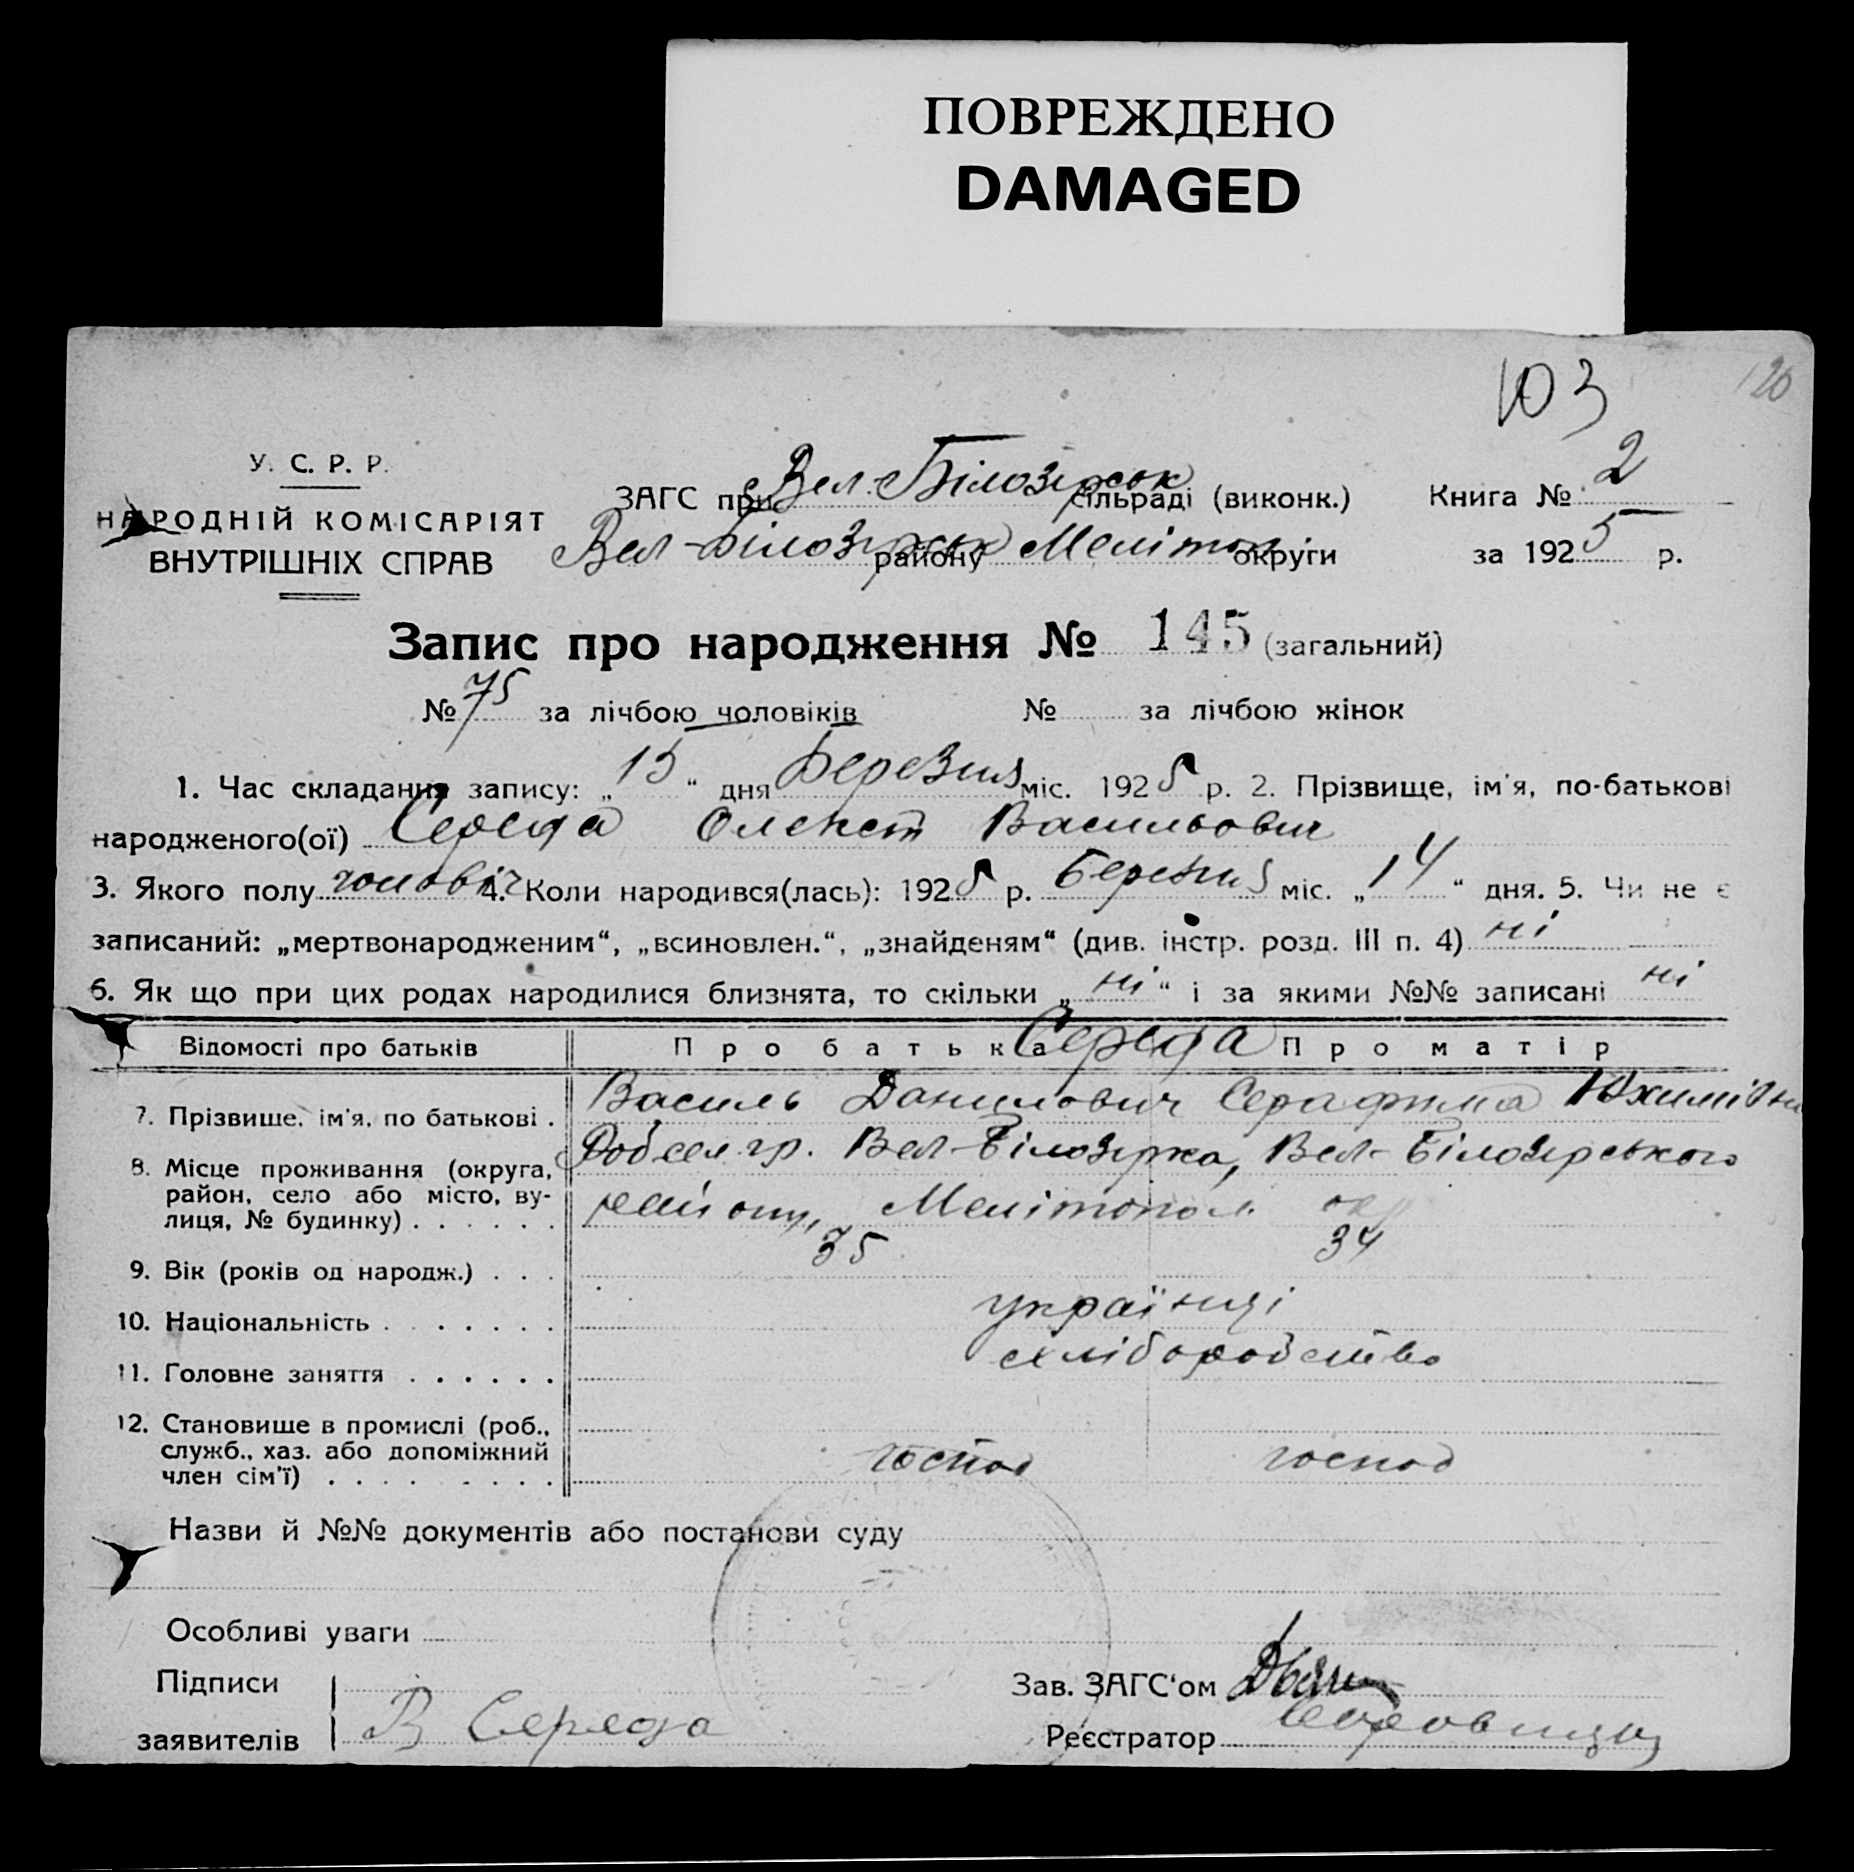 ПОВРЕЖДЕНО
DAMAGED
103
120
У. С. Р. Р.
НАРОДНІЙ КОМІСАРІЯТ
ВНУТРІШНІХ СПРАВ
ЗАГС при Вел-Білозірськ сільраді (виконк.) Книга № 2
Вел-Білозірськ району Мелітоп округи за 1925 р.
Запис про народження № 145 (загальний)
№ 75 за лічбою чоловіків № за лічбою жінок
1. Час складання запису: „15“ дня Березня міс. 1925 р. 2. Прізвище, ім'я, по-батькові
народженого(ої) Середа Олекст Васильович
3. Якого полу чоловіч 4. Коли народився(лась): 1925 р. Березня міс. „14“ дня. 5. Чи не є
записаний: „мертвонародженим“, „всиновлен.“, „знайденям“ (див. інстр. розд. III п. 4) ні
6. Як що при цих родах народилися близнята, то скільки „ні“ і за якими №№ записані ні
Відомості про батьків Про батька Середа Про матір
7. Прізвище, ім'я, по батькові . Василь Данилович Серафима Юхимівна
8. Місце проживання (округа, Вел-Білозірка, Вел-Білозірського
район, село або місто, ву-
лиця, № будинку) . . . . . . району, Мелітопол. окр
9. Вік (років од народж.) . . . 35 34
10. Національність . . . . . . . українці
11. Головне заняття . . . . . . хліборобство
12. Становище в промислі (роб.,
служб., хаз. або допоміжний
член сім'ї) . . . . . . . . . господ господ
Назви й №№ документів або постанови суду
Особливі уваги
Підписи Зав. ЗАГС'ом
заявителів В Середа Реєстратор